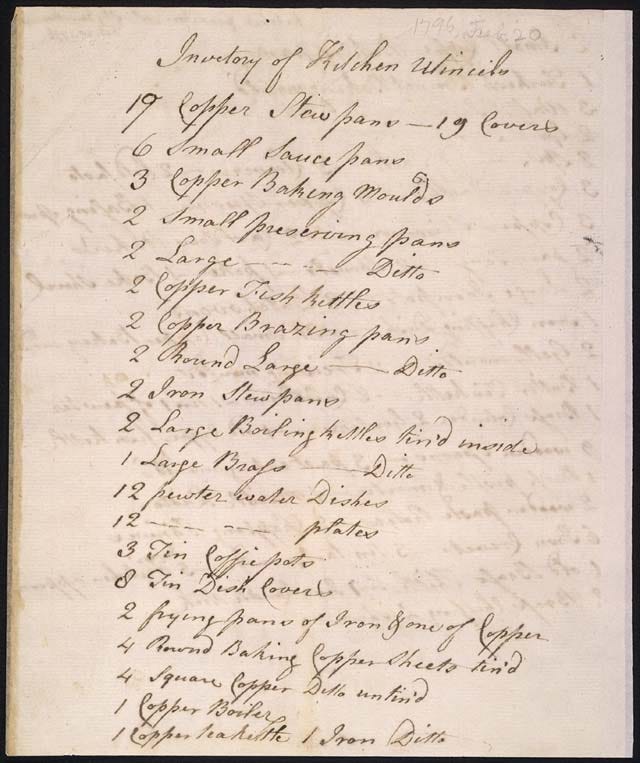 1796, Feb 20
Inventory of Kitchen Utincils
19 Copper Stewpans — 19 Covers
6 Small Saucepans
3 Copper Baking Moulds
2 Small preserving pans
2 Large - - - - Ditto
2 Copper Fish kettles
2 Copper Brazing pans
2 Round Large —— Ditto
2 Iron Stewpans
2 Large Boiling kettles tin'd inside
1 Large Brass —— Ditto
12 pewter water Dishes
12 — - — - plates
3 Tin Coffie pots
8 Tin Dish Covers
2 frying pans of Iron & one of Copper
4 Round Baking Copper Sheets tin'd
4 Square Copper Ditto untin'd
1 Copper Boiler
1 Copper teakettle 1 Iron Ditto